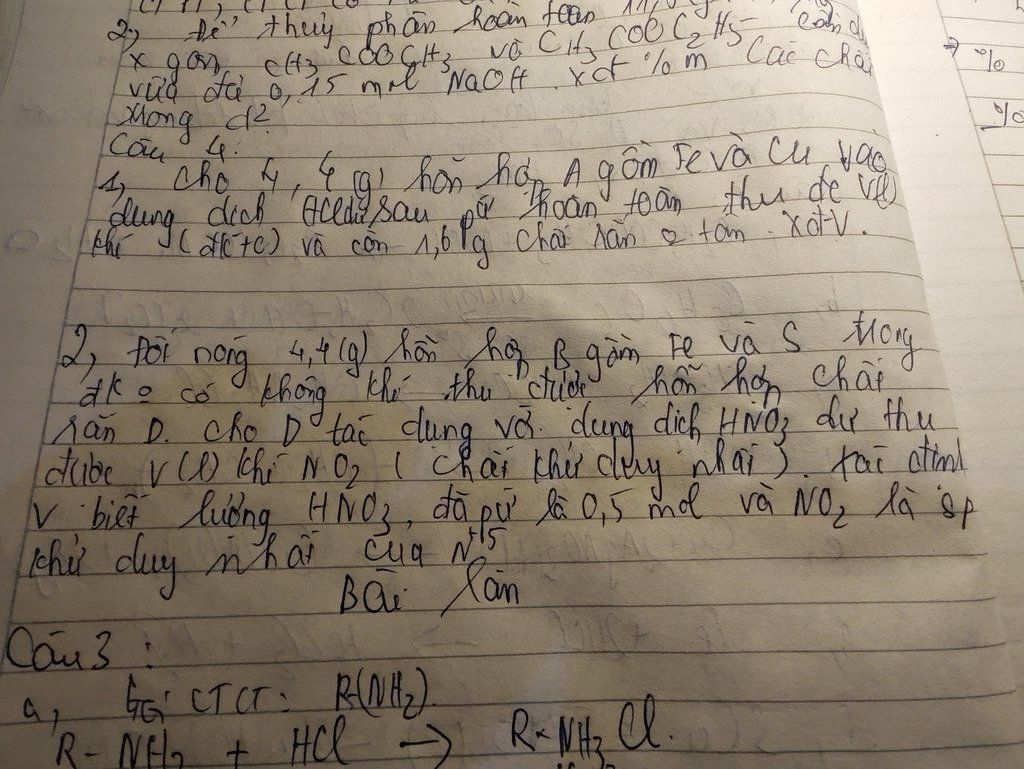 2, Để thuỷ phân hoàn toàn 11,
x gồm CH3 COOCH3 và CH3 COOC2H5 cần d
vừa đủ 0,15 mol NaOH. xđ % m các chất
trong d2
Câu 4:
1, cho 4,4 (g) hỗn hợp A gồm Fe và Cu vào
dung dịch HCl dư sau pứ hoàn toàn thu đc V(l)
khí (đktc) và còn 1,6 g chất rắn o tan. Xđ V.
2, Đốt nóng 4,4 (g) hỗn hợp B gồm Fe và S trong
đk o có không khí thu được hỗn hợp chất
rắn D. cho D tác dụng với dung dịch HNO3 dư thu
được V(l) khí NO2 (chất khử duy nhất). xác định
V biết lượng HNO3, đã pứ là 0,5 mol và NO2 là sp
khử duy nhất của N+5
Bài làm
Câu 3 :
a, Gọi CTCT: R(NH2)
R - NH2 + HCl → R- NH3 Cl.
→ %
%